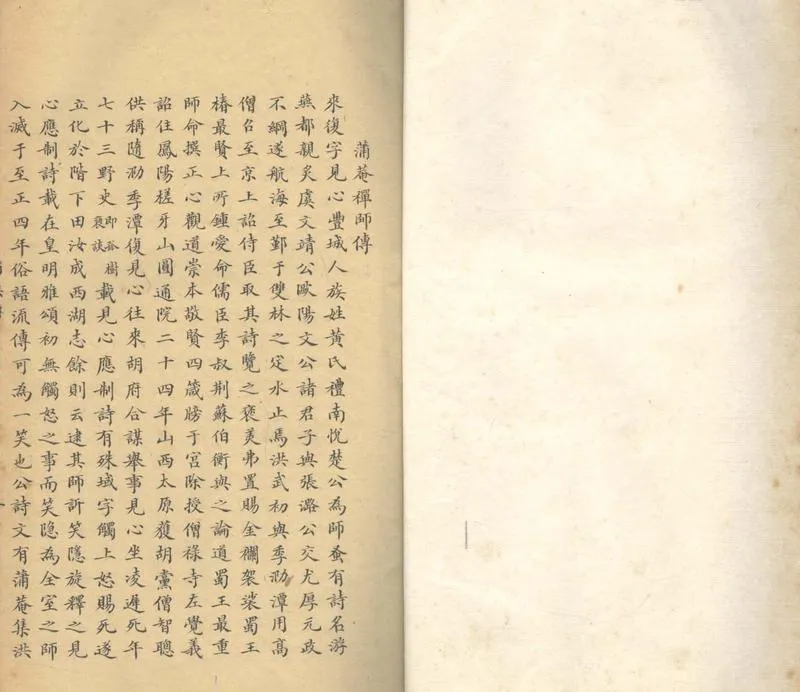 蒲菴禪師傳
來復字見心豐城人族姓黃氏禮南悅楚公為師蚤有詩名游
燕都親炙虞文靖公歐陽文公諸君子與張潞公交尤厚元政
不綱遂航海至鄞于雙林之定水止焉洪武初與季泐潭用高
僧召至京上詔侍臣取其詩覽之褒美弗置賜金襴袈裟蜀王
椿最賢上所鍾愛命儒臣李叔荆蘇伯衡與之論道蜀王最重
師命撰正心觀道崇本敬賢四箴牓于宮除授僧祿寺左覺義
詔住鳳陽槎牙山圓通院二十四年山西太原獲胡黨僧智聰
供稱隨泐季潭復見心往來胡府合謀舉事見心坐凌遲死年
七十三野史即孤樹裒談載見心應制詩有殊域字觸上怒賜死遂
立化於階下田汝成西湖志餘則云逮其師訢笑隱旋釋之見
心應制詩載在皇明雅頌初無觸怒之事而笑隱為全室之師
入滅于至正四年俗語流傳可為一笑也公詩文有蒲菴集洪